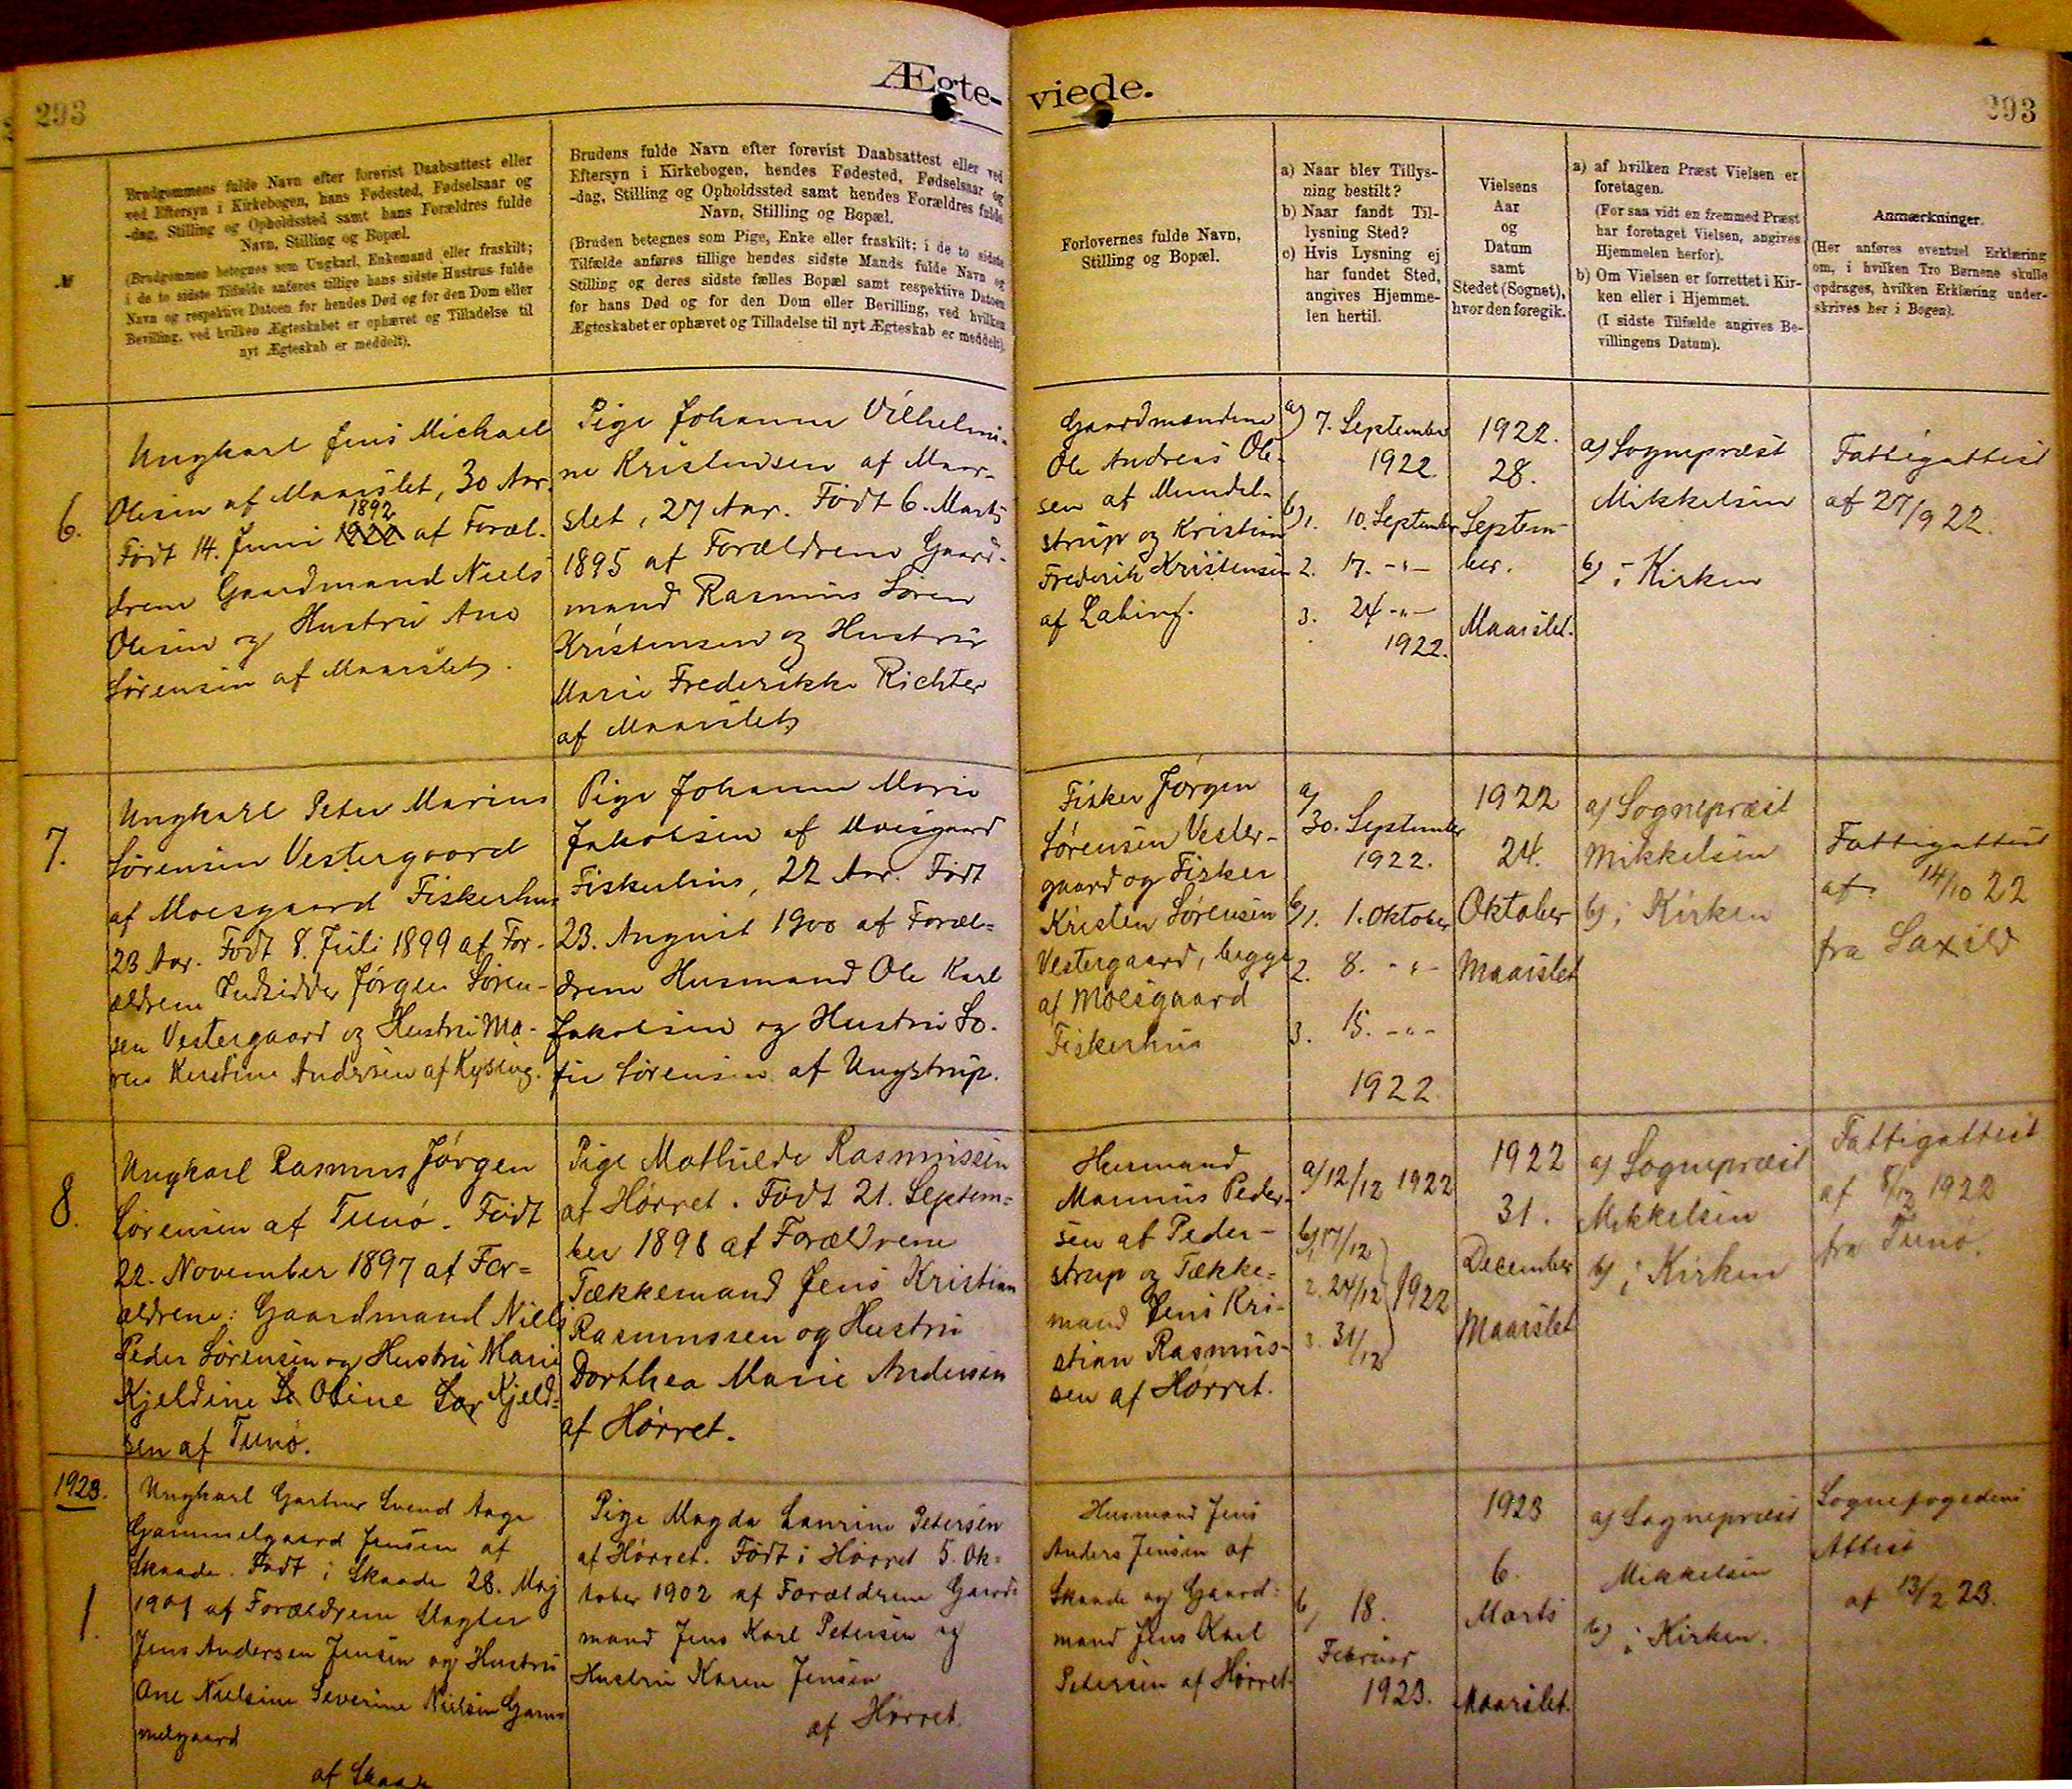 293
Ægte-
viede.
293
№
Brudgommens fulde Navn efter forevist Daabsattest eller
ved Eftersyn i Kirkebogen, hans Fødested, Fødselsaar og
-dag, Stilling og Opholdssted samt hans Forældres fulde
Navn, Stilling og Bopæl.
(Brudgommen betegnes som Ungkarl, Enkemand eller fraskilt;
i de to sidste Tilfælde anføres tillige hans sidste Hustrus fulde
Navn og respektive Datoen for hendes Død og for den Dom eller
Bevilling, ved hvilken Ægteskabet er ophævet og Tilladelse til
nyt Ægteskab er meddelt).
Brudens fulde Navn efter forevist Daabsattest eller ved
Eftersyn i Kirkebogen, hendes Fødested, Fødselsaar og
-dag, Stilling og Opholdssted samt hendes Forældres fulde
Navn, Stilling og Bopæl.
(Bruden betegnes som Pige, Enke eller fraskilt; i de to sidste
Tilfælde anføres tillige hendes sidste Mands fulde Navn og
Stilling og deres sidste fælles Bopæl samt respektive Datoen
for hans Død og for den Dom eller Bevilling, ved hvilken
Ægteskabet er ophævet og Tilladelse til nyt Ægteskab er meddelt).
Forlovernes fulde Navn,
Stilling og Bopæl.
a) Naar blev Tillys-
ning bestilt?
b) Naar fandt Til-
lysning Sted?
c) Hvis Lysning ej
har fundet Sted,
angives Hjemme-
len hertil.
Vielsens
Aar
og
Datum
samt
Stedet (Sognet),
hvor den foregik.
a) af hvilken Præst Vielsen er
foretagen.
(For saa vidt en fremmed Præst
har foretaget Vielsen, angives
Hjemmelen herfor).
b) Om Vielsen er forrettet i Kir-
ken eller i Hjemmet.
(I sidste Tilfælde angives Be-
villingens Datum).
Anmærkninger.
(Her anføres eventuel Erklæring
om, i hvilken Tro Børnene skulle
opdrages, hvilken Erklæring under-
skrives her i Bogen).
6.
Ungkarl Jens Michael
Olesen af Maarslet, 30 Aar.
1892
Født 14. Juni 1922 af Foræl-
drene Gaardmand Niels
Olesen og Hustru Ane
Sørensen af Maarslet.
Pige Johanne Vilhelmi-
ne Kristensen af Maar-
slet, 27 Aar. Født 6. Marts
1895 af Forældrene Gaard-
mand Rasmus Søren
Kristensen og Hustru
Marie Frederikke Richter
af Maarslet
Gaardmændene
Ole Andreas Ole-
sen af Mundel-
strup og Kristian
Frederik Kristensen
af Labing.
a) 7. September
1922
b) 1. 10. September
2. 17. -"-
3. 24 -"-
1922.
1922.
28.
Septem-
ber.
Maarslet.
a) Sognepræst
Mikkelsen
b) i Kirken
Fattigattest
af 27/9 22.
7.
Ungkarl Peter Marius
Sørensen Vestergaard
af Moesgaard Fiskerhus
23 Aar. Født 8. Juli 1899 af For-
ældrene Indsidder Jørgen Søren-
sen Vestergaard og Hustru Ma-
ren Kirstine Andersen af Kysing.
Pige Johanne Marie
Jakobsen af Moesgaard
Fiskerhus, 22 Aar. Født
23. August 1900 af Foræl=
drene Husmand Ole Karl
Jakobsen og Hustru So-
fie Sørensen af Ungstrup.
Fisker Jørgen
Sørensen Vester-
gaard og Fisker
Kristen Sørensen
Vestergaard, begge
af Moesgaard
Fiskerhus
a)
30. September
1922.
b) 1. 1. Oktober
2. 8. -"-
3. 15. -"-
1922
1922
24.
Oktober
Maarslet
a) Sognepræst
Mikkelsen
b) i Kirken
Fattigattest
af 14/10 22
fra Saxild
8.
Ungkarl Rasmus Jørgen
Sørensen af Tunø. Født
22. November 1897 af For=
ældrene: Gaardmand Niels
Peder Sørensen og Hustru Marie
Kjeldine Oline Kjeld=
sen af Tunø.
Pige Mathilde Rasmussen
af Hørret. Født 21. Septem=
ber 1898 af Forældrene
Tækkemand Jens Kristian
Rasmussen og Hustru
Dorthea Marie Andersen
af Hørret.
Husmand
Marinus Peder-
sen af Peder-
strup og Tække=
mand Jens Kri-
stian Rasmus-
sen af Hørret.
a) 12/12 1922
b) 1. 17/12
2. 24/12 1922
3. 31/12
1922
31.
December
Maarslet
a) Sognepræst
Mikkelsen
b) i Kirken
Fattigattest
af 8/12 1922
fra Tunø.
1923.
1.
Ungkarl Gartner Svend Aage
Gammelgaard Jensen af
Skaade. Født i Skaade 28. Maj
1901 af Forældrene Vægter
Jens Andersen Jensen og Hustru
Ane Nielsine Severine Nielsen Gam=
melgaard
af Skaade
Pige Magda Laurine Petersen
af Hørret. Født i Hørret 5. Ok=
tober 1902 af Forældrene Gaard=
mand Jens Karl Petersen og
Hustru Karen Jensen
af Hørret.
Husmand Jens
Anders Jensen af
Skaade og Gaard=
mand Jens Karl
Petersen af Hørret.
b) 18.
Februar
1923.
1923
6.
Marts
Maarslet.
a) Sognepræst
Mikkelsen
b) i Kirken.
Sognefogedens
Attest
af 13/2 23.